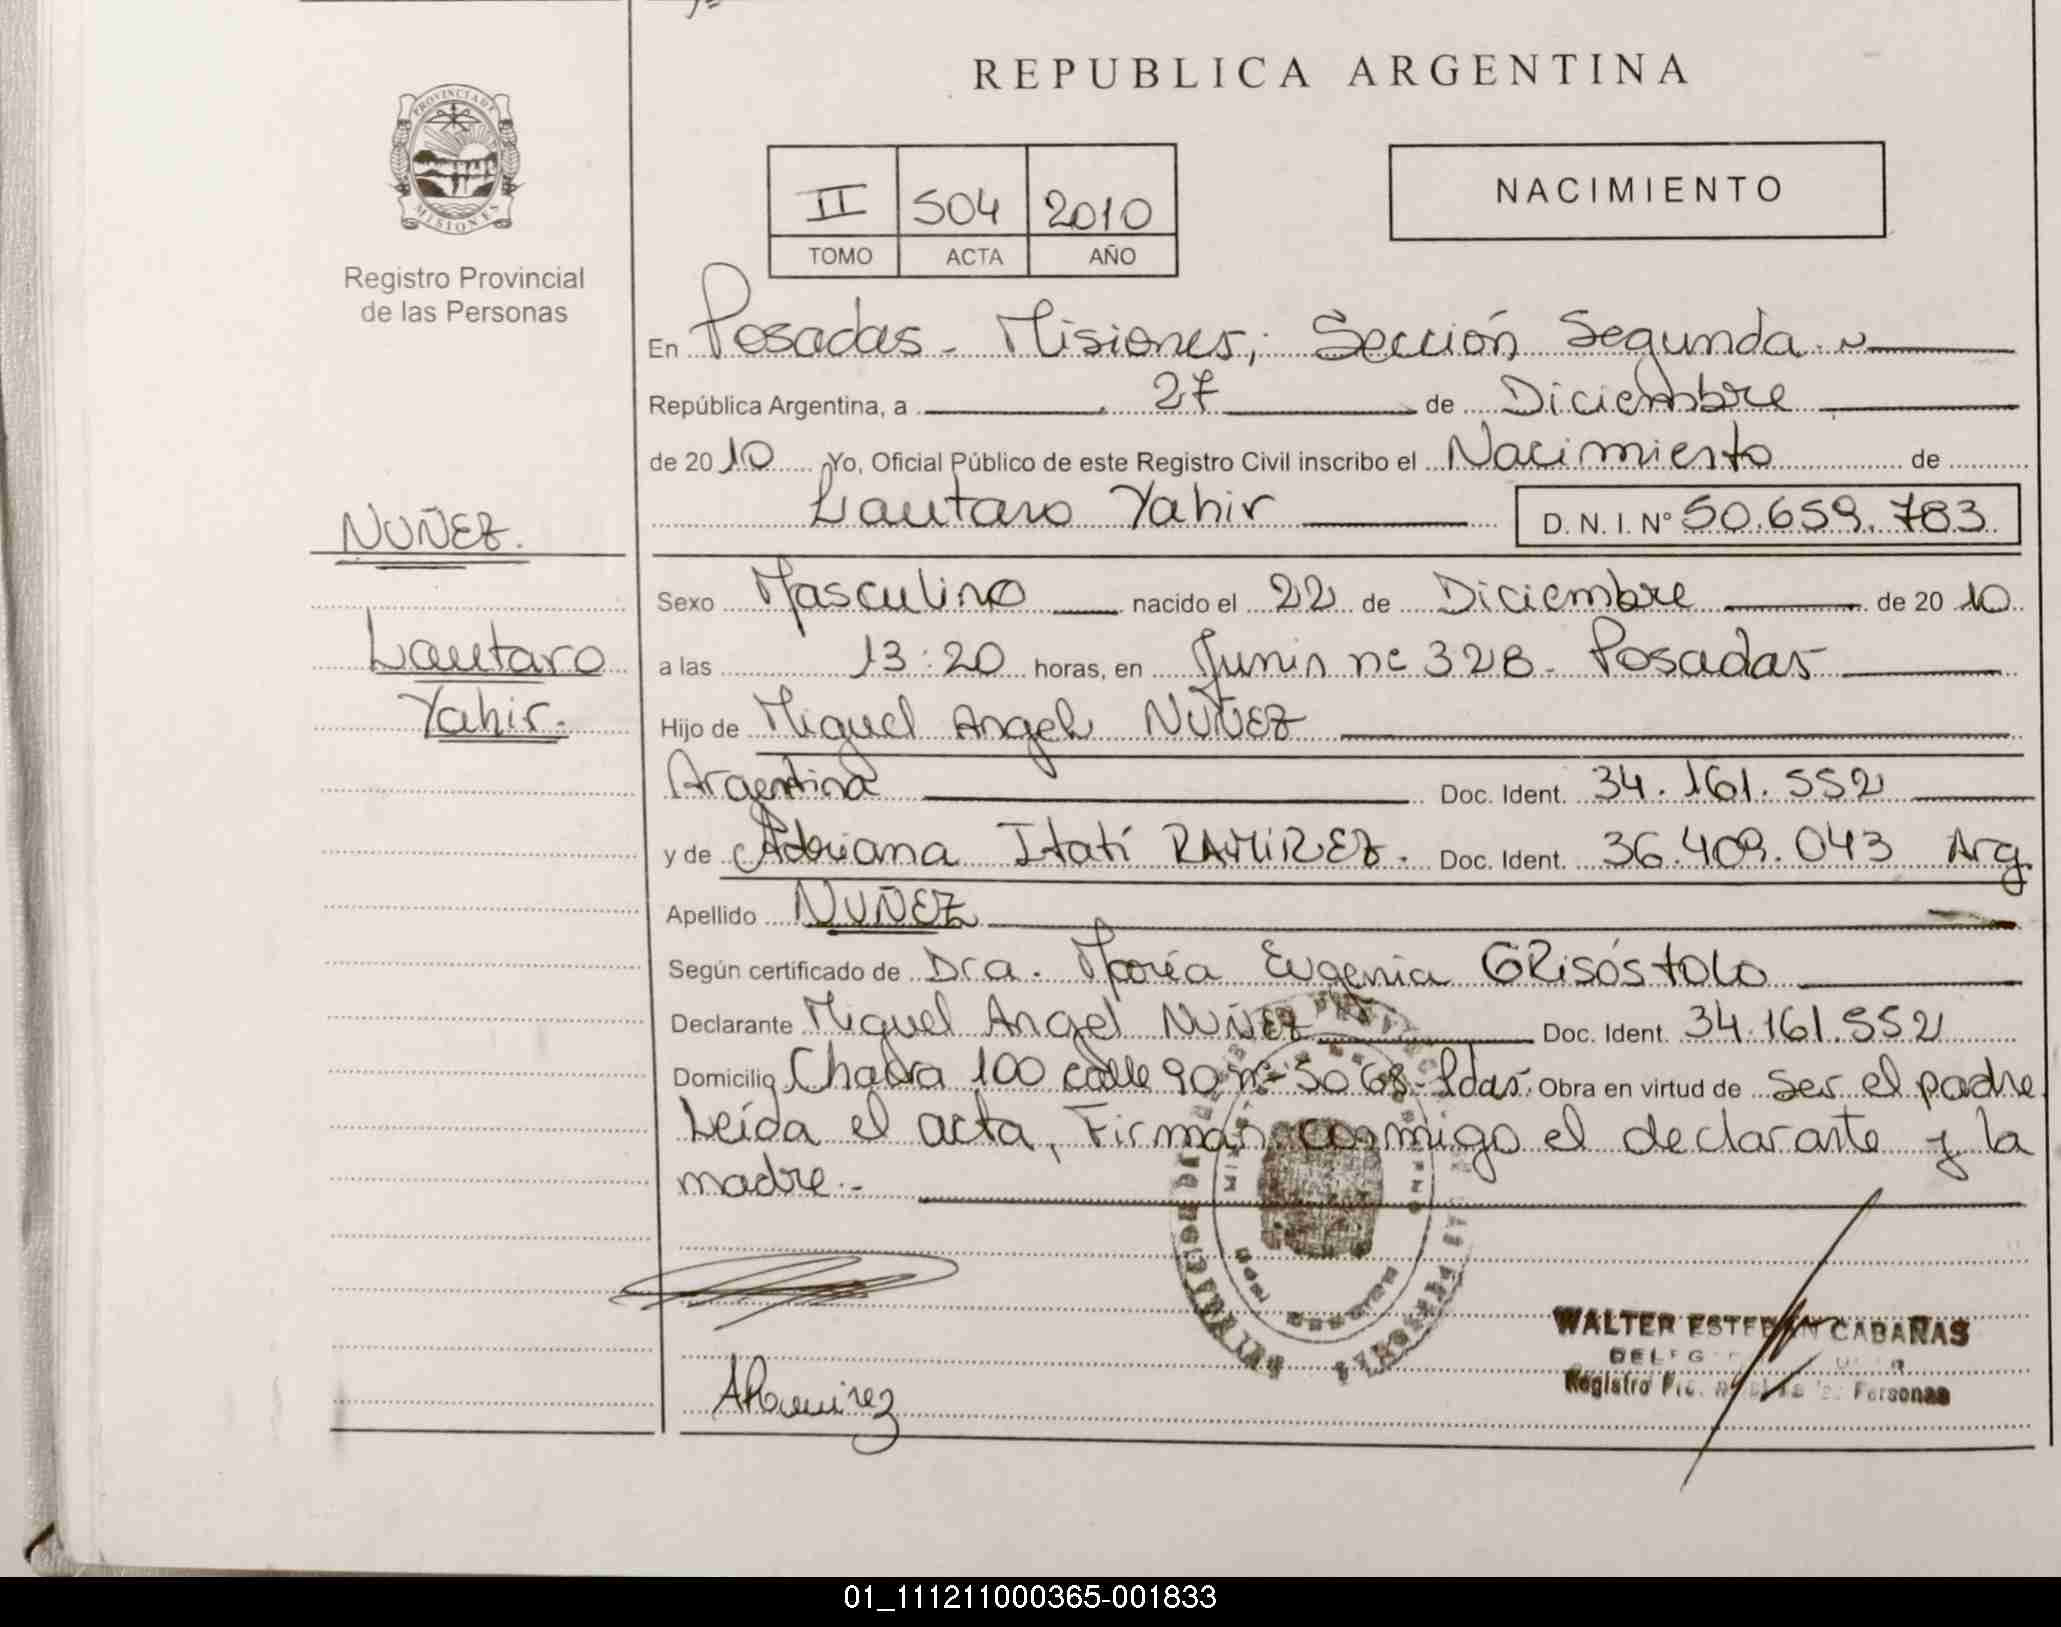 REPUBLICA ARGENTINA
PROVINCIA DE
MISIONES
Registro Provincial
de las Personas
II 504 2010
TOMO ACTA AÑO
NACIMIENTO
En Posadas - Misiones, Sección Segunda
República Argentina, a 27 de Diciembre
de 2010 Yo, Oficial Público de este Registro Civil inscribo el Nacimiento de
Lautaro Yahir D. N. I. Nº 50.659.783
NUÑEZ.
Lautaro
Yahir.
Sexo Masculino nacido el 22 de Diciembre de 2010
a las 13:20 horas, en Junin nº 328 - Posadas
Hijo de Miguel Angel NUÑEZ
Argentina Doc. Ident. 34.161.552
y de Adriana Itatí RAMIREZ. Doc. Ident. 36.409.043 Arg
Apellido NUÑEZ
Según certificado de Dra. María Eugenia GRisóstolo
Declarante Miguel Angel NUÑEZ Doc. Ident. 34.161.552
Domicilio Chacra 100 calle 90 nº 5068 - Pdas. Obra en virtud de ser el padre.
Leída el acta, Firman conmigo el declarante y la
madre.-
ARamirez
WALTER ESTEBAN CABAÑAS
Registro Personas
01_111211000365-001833